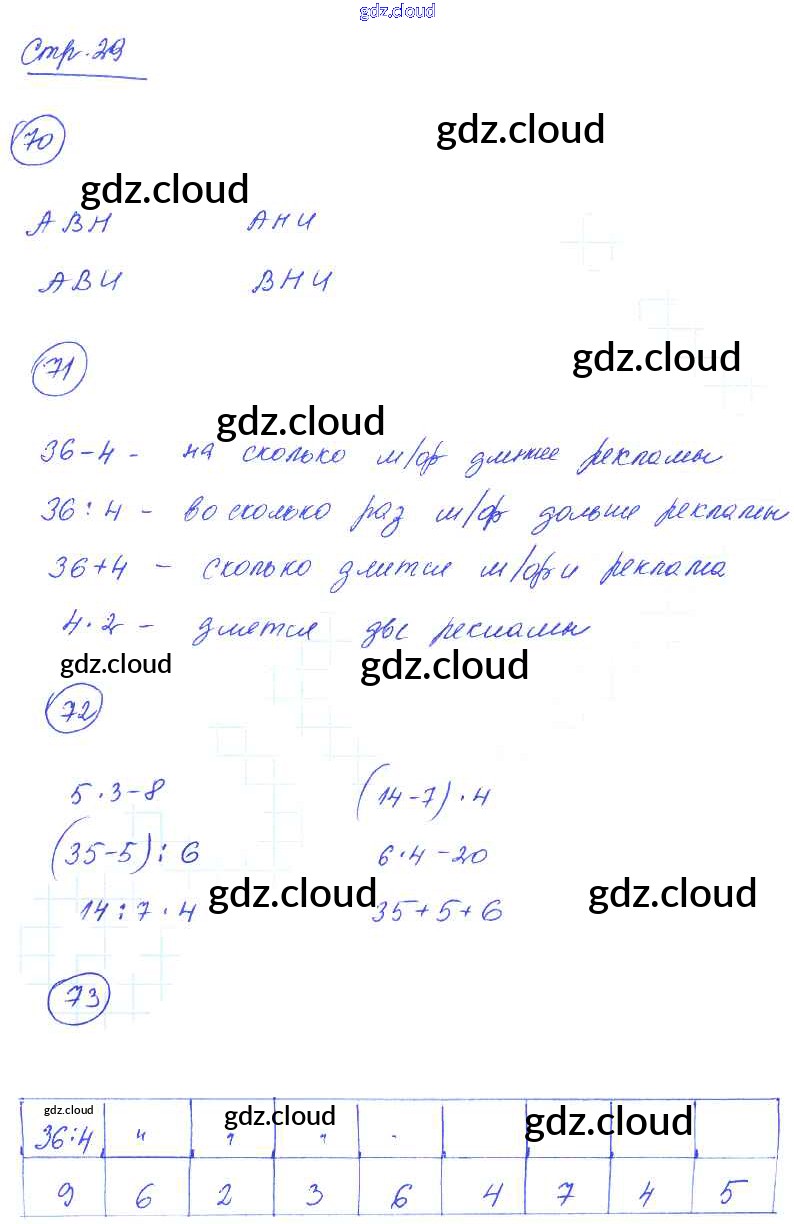 gdz.cloud
Стр. 29
70
gdz.cloud
gdz.cloud
АВН АНИ
АВИ ВНИ
gdz.cloud
71
gdz.cloud
36-4 - на сколько м/ф длиннее рекламы
36:4 - во сколько раз м/ф дольше рекламы
36+4 - сколько длится м/ф и реклама
4·2 - длятся две рекламы
gdz.cloud gdz.cloud
72
5·3-8 (14-7)·4
(35-5):6 6·4-20
14:7·4 35+5+6
gdz.cloud gdz.cloud
73
gdz.cloud gdz.cloud gdz.cloud
36:4 " " "
9 6 2 3 6 4 7 4 5